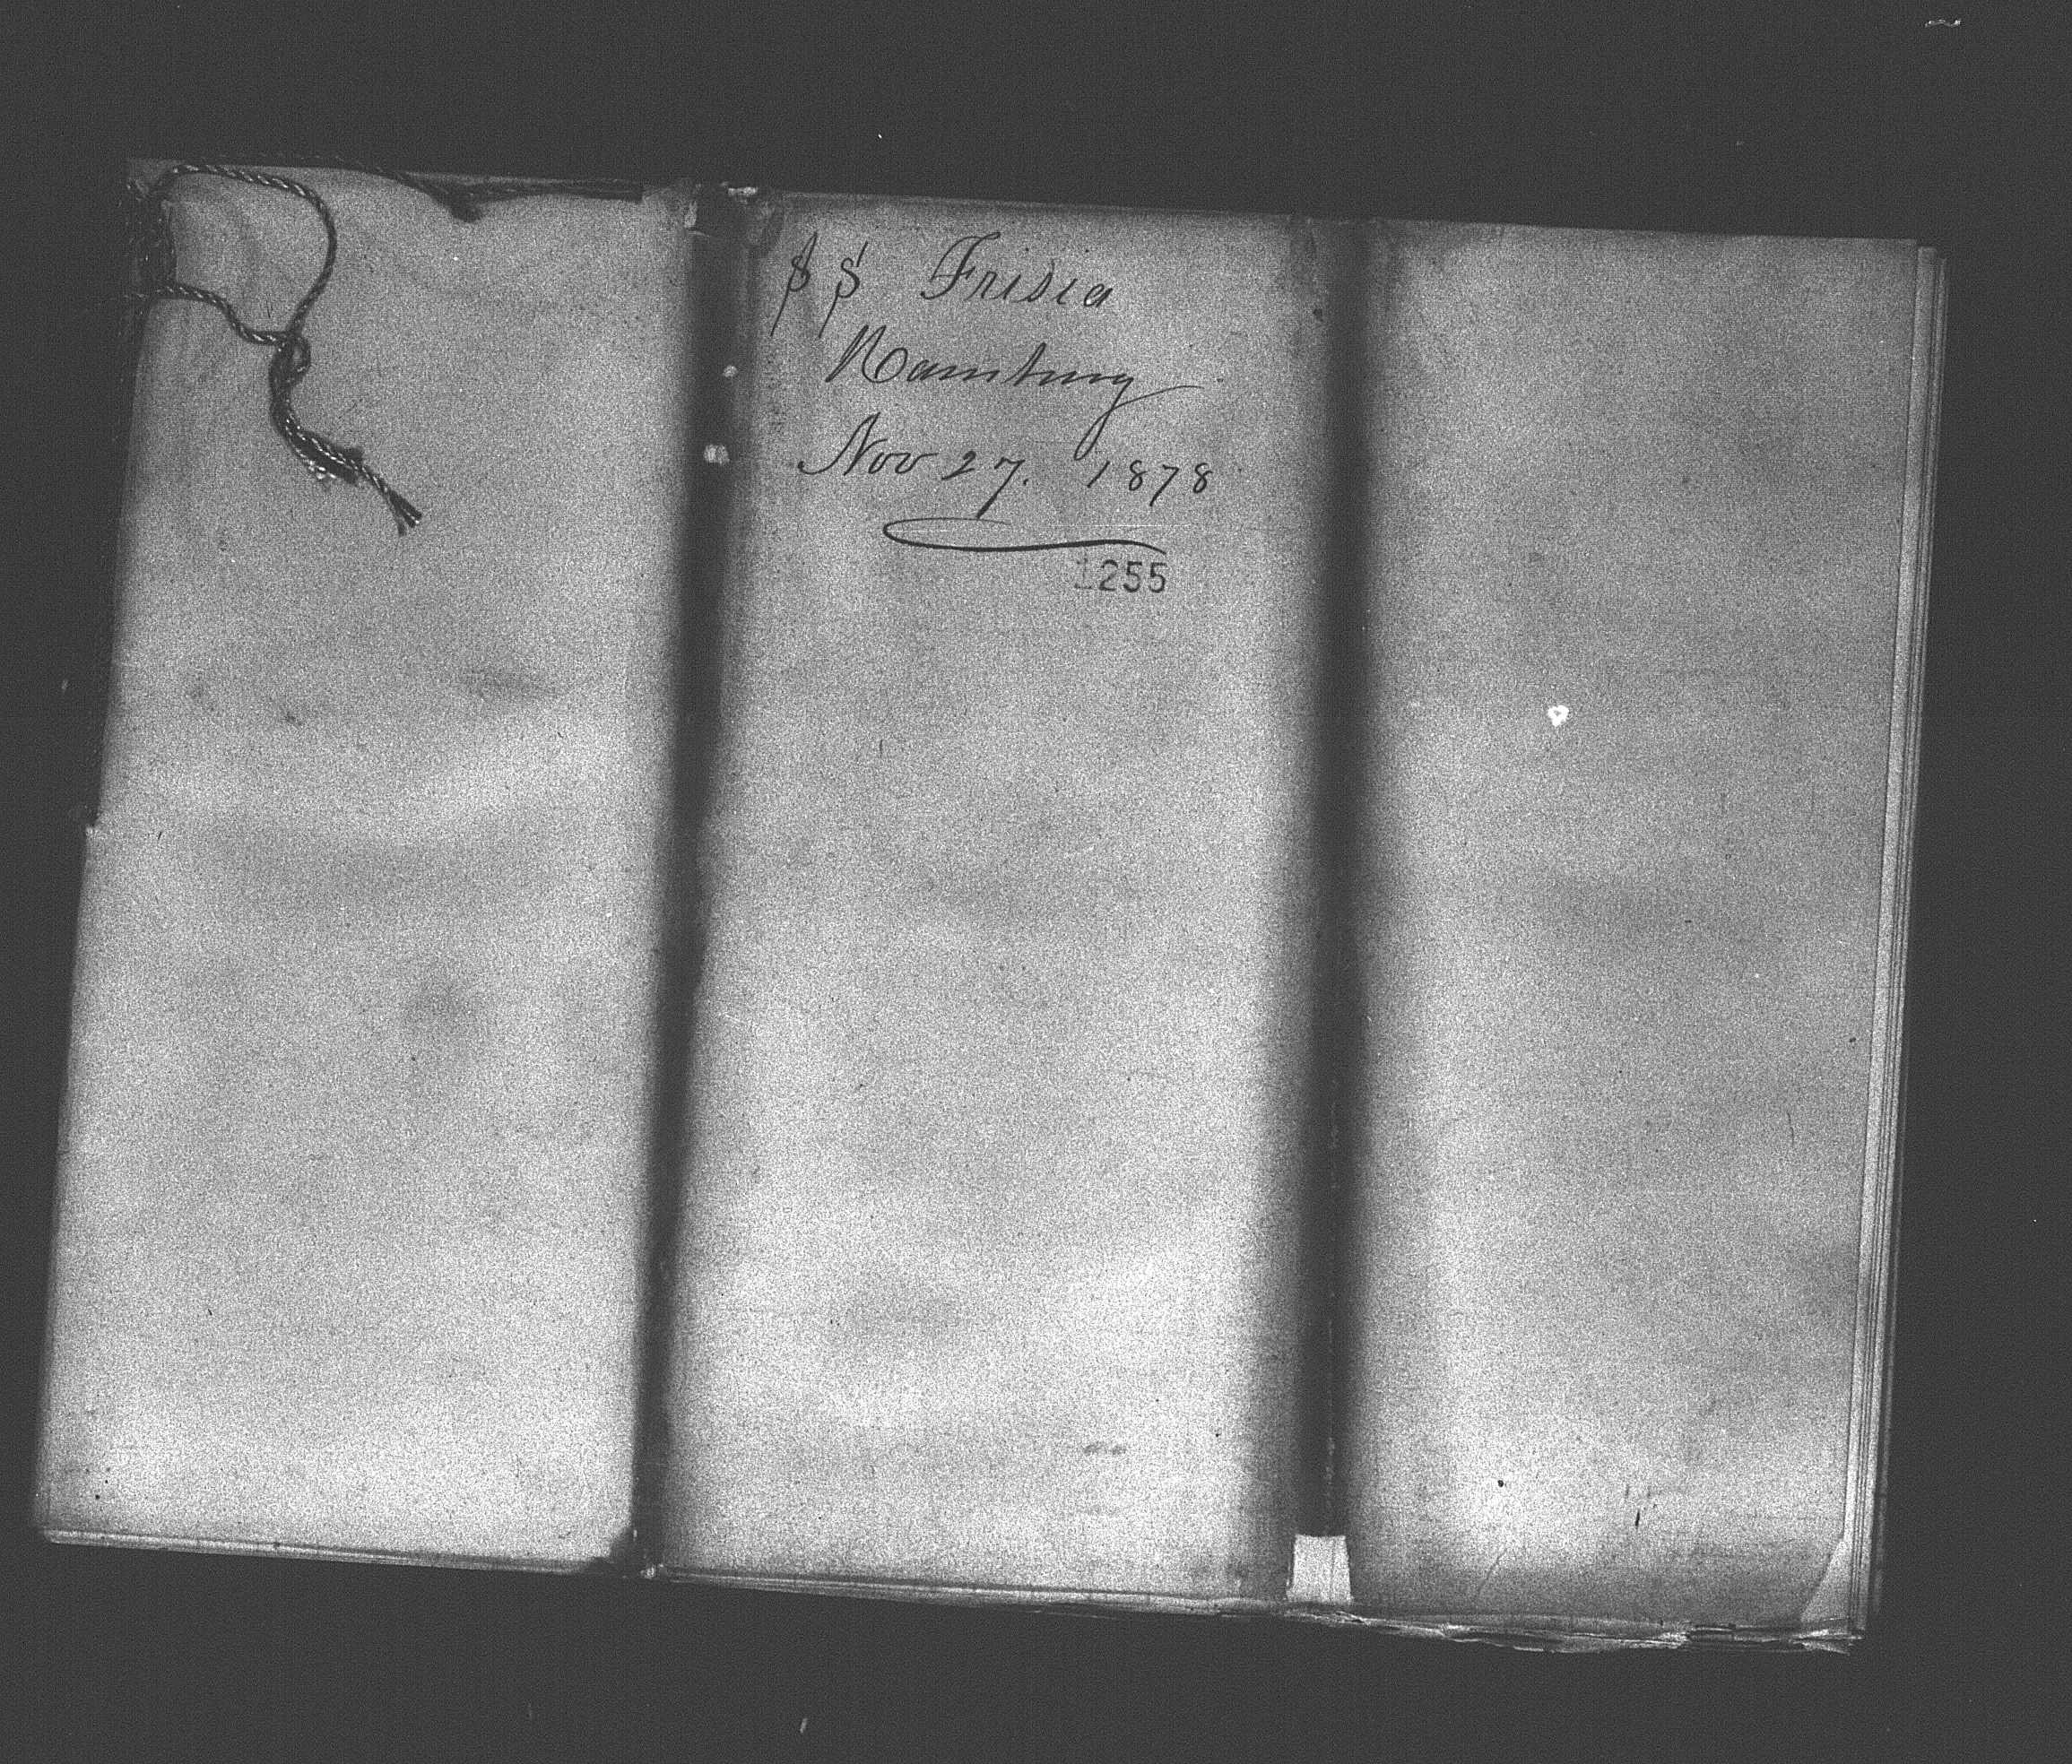 SS Frisia
Hamburg
Nov 27. 1878
1255